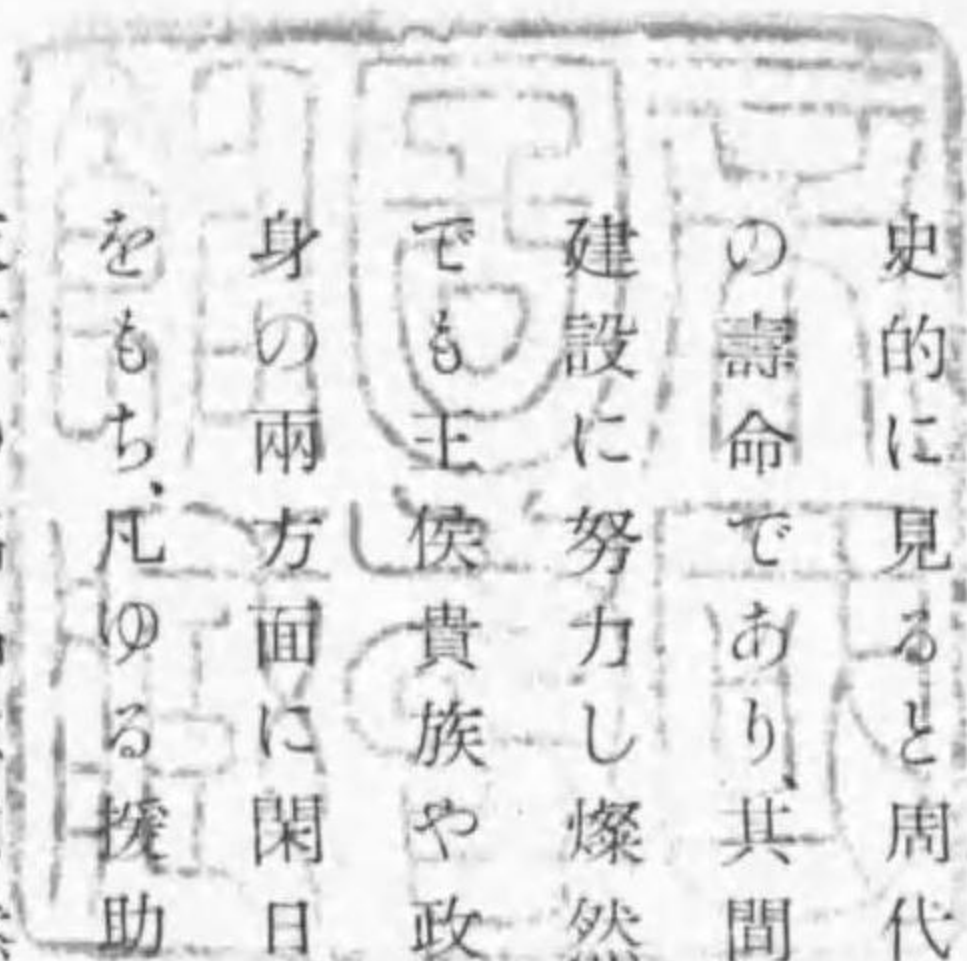 史的に見ると周代
の壽命であり、其間
建設に努力し燦然
でも王侯貴族や政
身の兩方面に閑日
をもち、凡ゆる援助